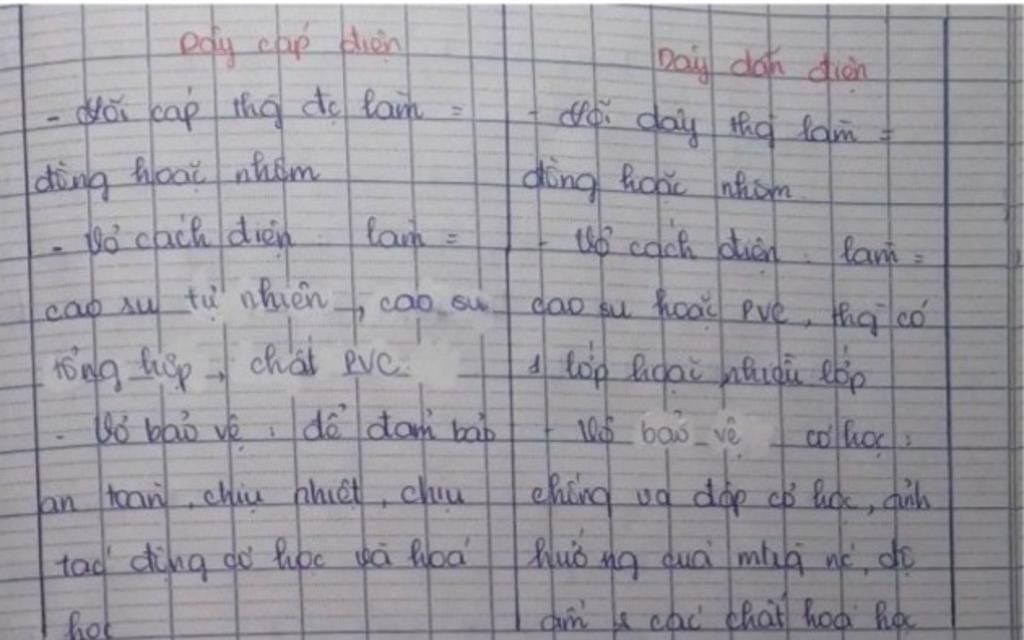 Dây cáp điện
- lõi cáp thg đc làm =
đồng hoặc nhôm
- Vỏ cách điện làm =
cao su tự nhiên, cao su
tổng hợp, chất PVC.
- Vỏ bảo vệ : để đảm bảo
an toàn, chịu nhiệt, chịu
tác động cơ học và hoá
học
Dây dẫn điện
- lõi dây thg làm =
đồng hoặc nhôm
- Vỏ cách điện : làm =
cao su hoặc PVC, thg có
1 lớp hoặc nhiều lớp
- Vỏ bảo vệ cơ học :
chống va đập cơ học, ảnh
hưởng của độ
ẩm & các chất hoá học